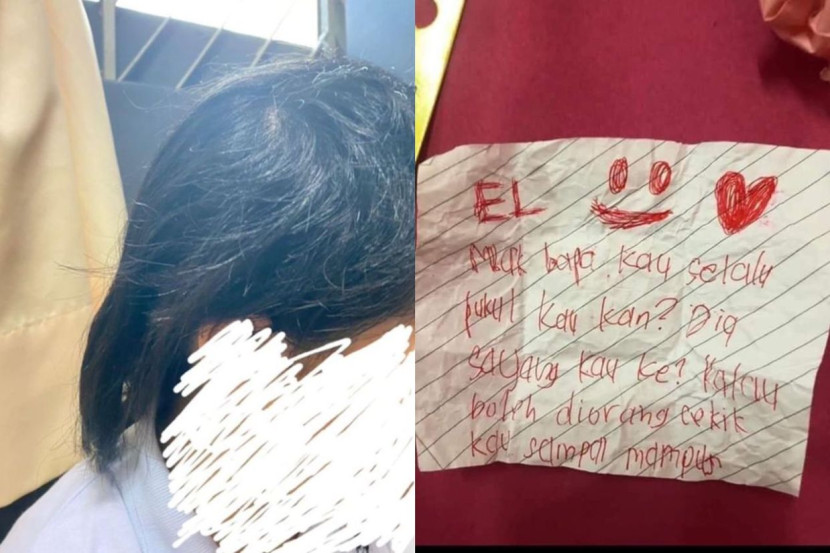 EL
Mak bapa kau selalu
pukul kau kan? Dia
sayang kau ke? Kalau
boleh diorang cekik
kau sampai mampus